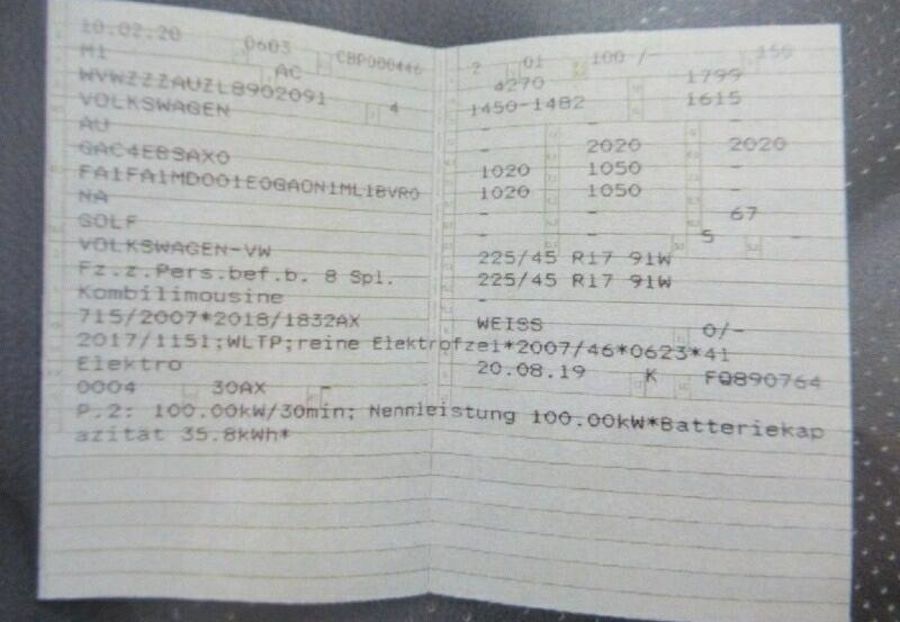 10.02.20 0603 CBP000446
M1 AC
WVWZZZAUZL8902091 4
VOLKSWAGEN
AU
GAC4EBSAX0
FA1FA1MD001E0GAON1ML1BVR0
NA
GOLF
VOLKSWAGEN-VW
Fz.z.Pers.bef.b. 8 Spl.
Kombilimousine
715/2007*2018/1832AX
2017/1151;WLTP;reine Elektrofzei*2007/46*0623*41
Elektro
0004 30AX
P.2: 100.00kW/30min; Nennleistung 100.00kW*Batteriekap
azität 35.8kWh*
2 01 100 / 159
4270 1799
1450-1482 1615
- - -
- 2020 2020
1020 1050 -
1020 1050 -
- - 67
- - 5 -
225/45 R17 91W
225/45 R17 91W
-
WEISS 0/-
20.08.19 K FQ890764